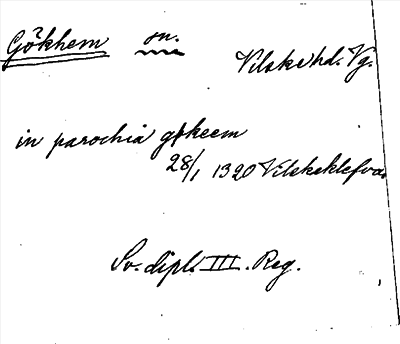 Gökhem sn.
Vilske hd. Vg.
in parochia gøkeem
28/1 1320 Vilskeklefva
Sv. dipl. III. Reg.